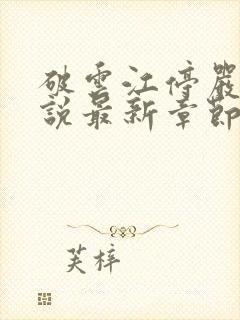 破雲江停嚴
說最新章節
芙梓